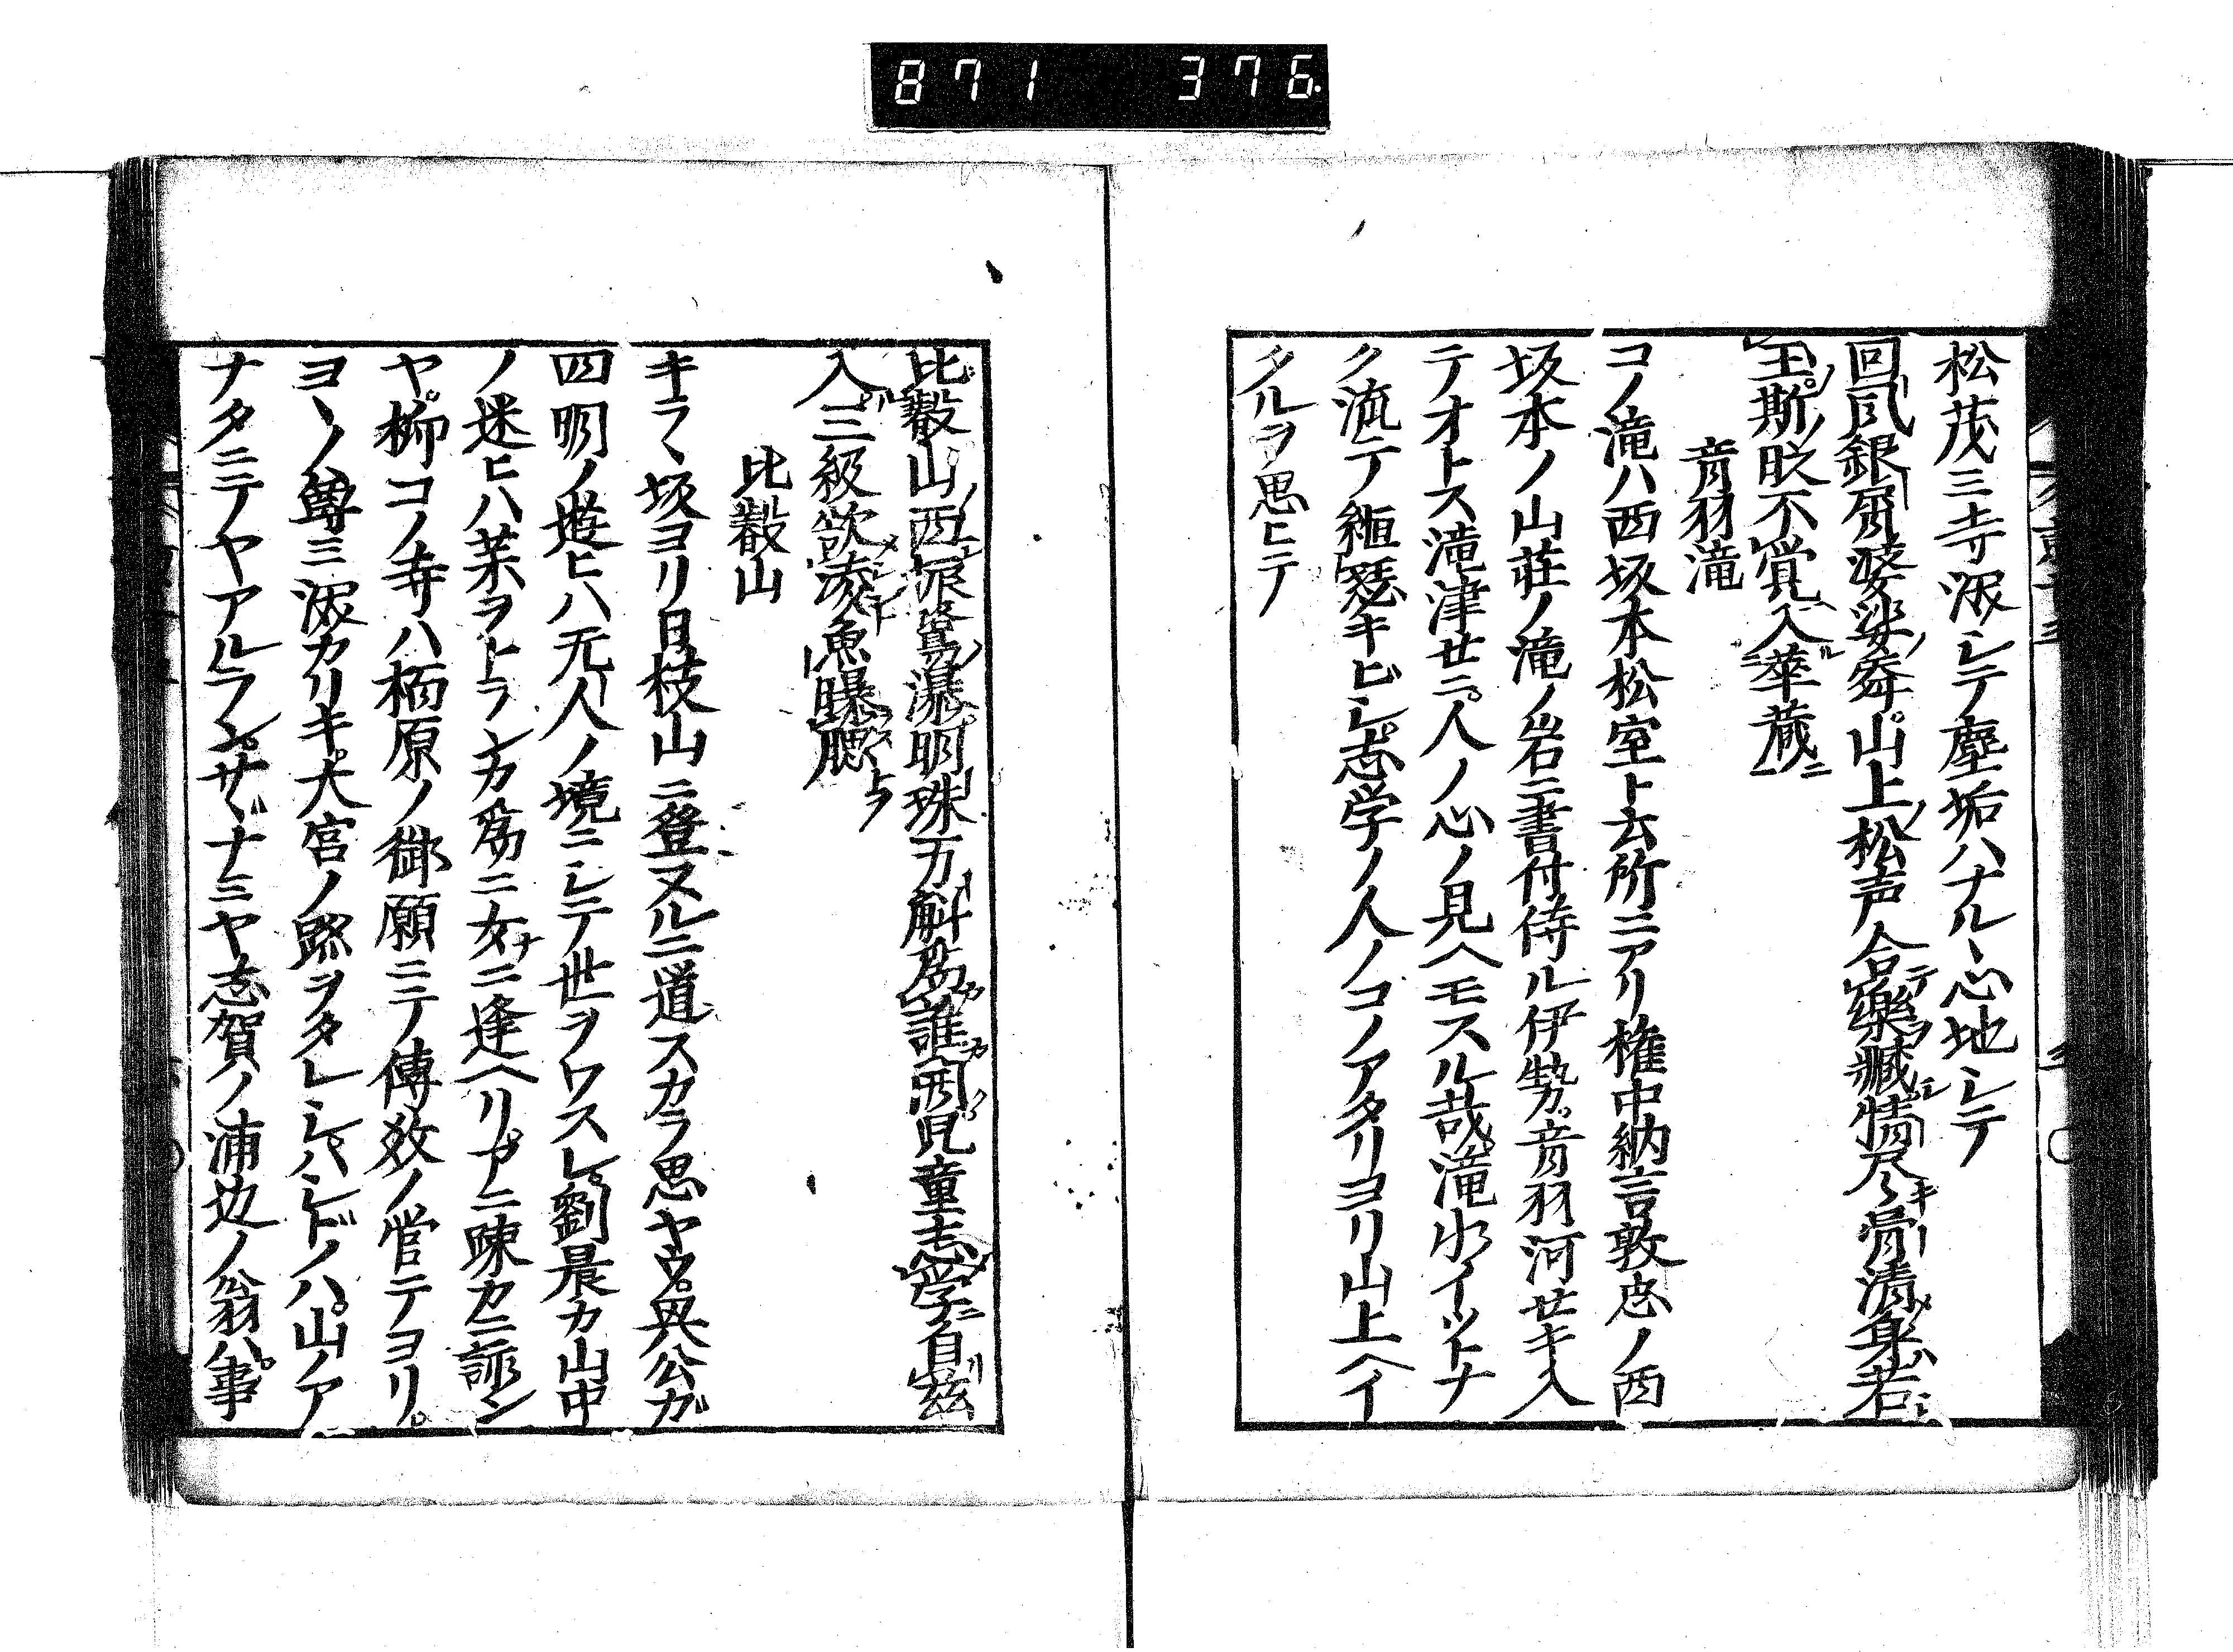 871 376
松茂ミ寺深シテ塵垢ハナルヽ心地シテ
回風銀屑婆娑舞山上松声合楽臓情尽骨清身若
玉斯時不覚入華蔵
音羽滝
コノ滝ハ西坂本松室ト云所ニアリ権中納言敦忠ノ西
坂本ノ山荘ノ滝ノ岩ニ書付侍ル伊勢音羽河せキ入
テオトス滝津せニ人ノ心ノ見ヘモスル哉滝水イットナ
ク流テ絙瑟キビシ志学ノ人ノコノアタリヨリ山上ヘイ
タルヲ思ヒテ
比叡山西垠鷺瀑明珠万斛為誰因児童志学自玆
入三級欲凌魚曝腮
比叡山
キラヽ坂ヨリ日枝山ニ登ヌルニ道スカラ思ヤウ異公ガ
四明ノ遊ヒハ无人ノ境ニシテ世ヲワスレ劉晨カ山中
ノ迷ヒハ茶ヲトラシカ為ニ女ニ逢ヘリアニ疎カニ詠ン
ヤ抑コノ寺ハ栢原ノ御願ニテ傳教ノ営テヨリ
ヨヽノ尊ミ深カリキ大宮ノ跡ヲタレシハシドノハ山ノア
ナタニテヤアルランサヾナミヤ志賀ノ浦辺ノ翁ハ事